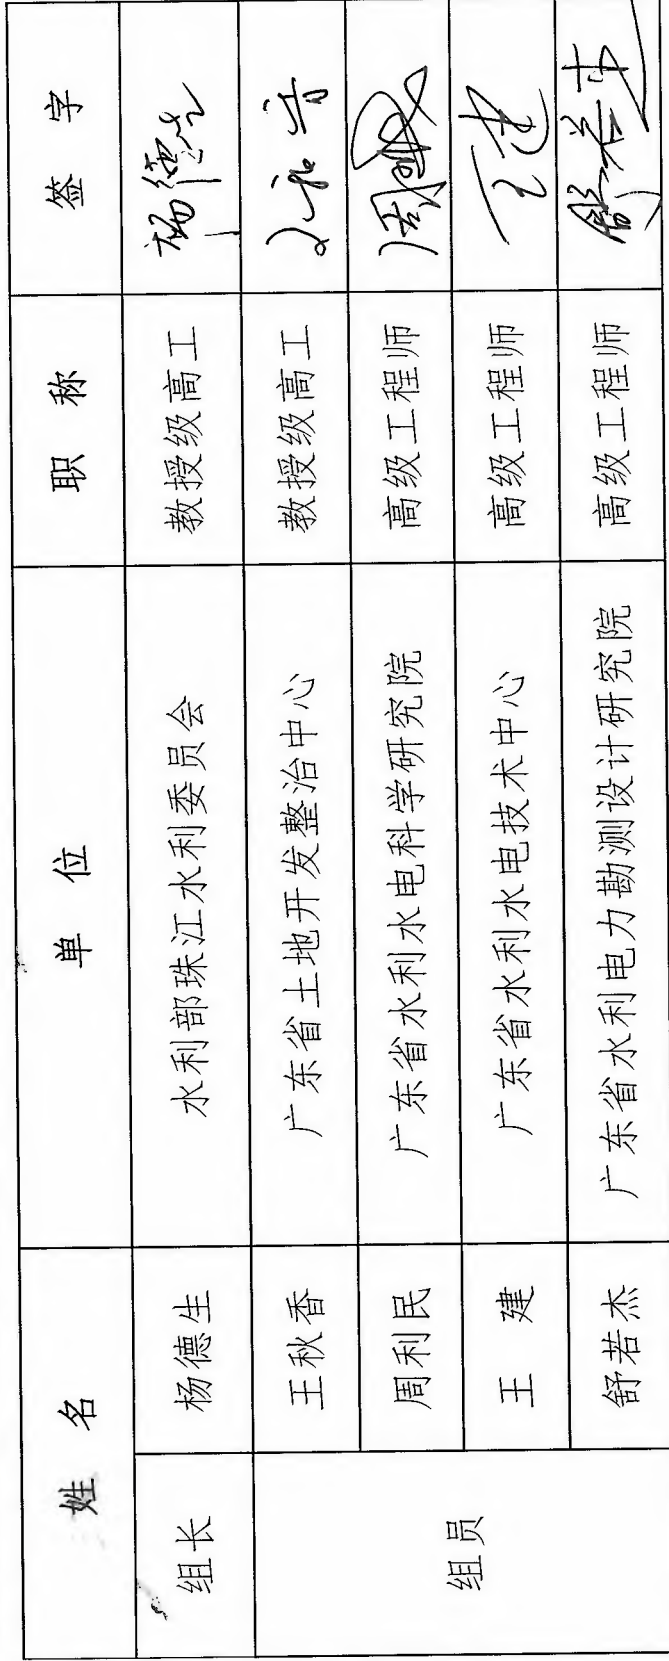 姓 名 单 位 职 称 签 字
组长 杨德生 水利部珠江水利委员会 教授级高工 杨德生
组员 王秋香 广东省土地开发整治中心 教授级高工
周利民 广东省水利水电科学研究院 高级工程师
王 建 广东省水利水电技术中心 高级工程师 王建
舒若杰 广东省水利电力勘测设计研究院 高级工程师 舒若杰